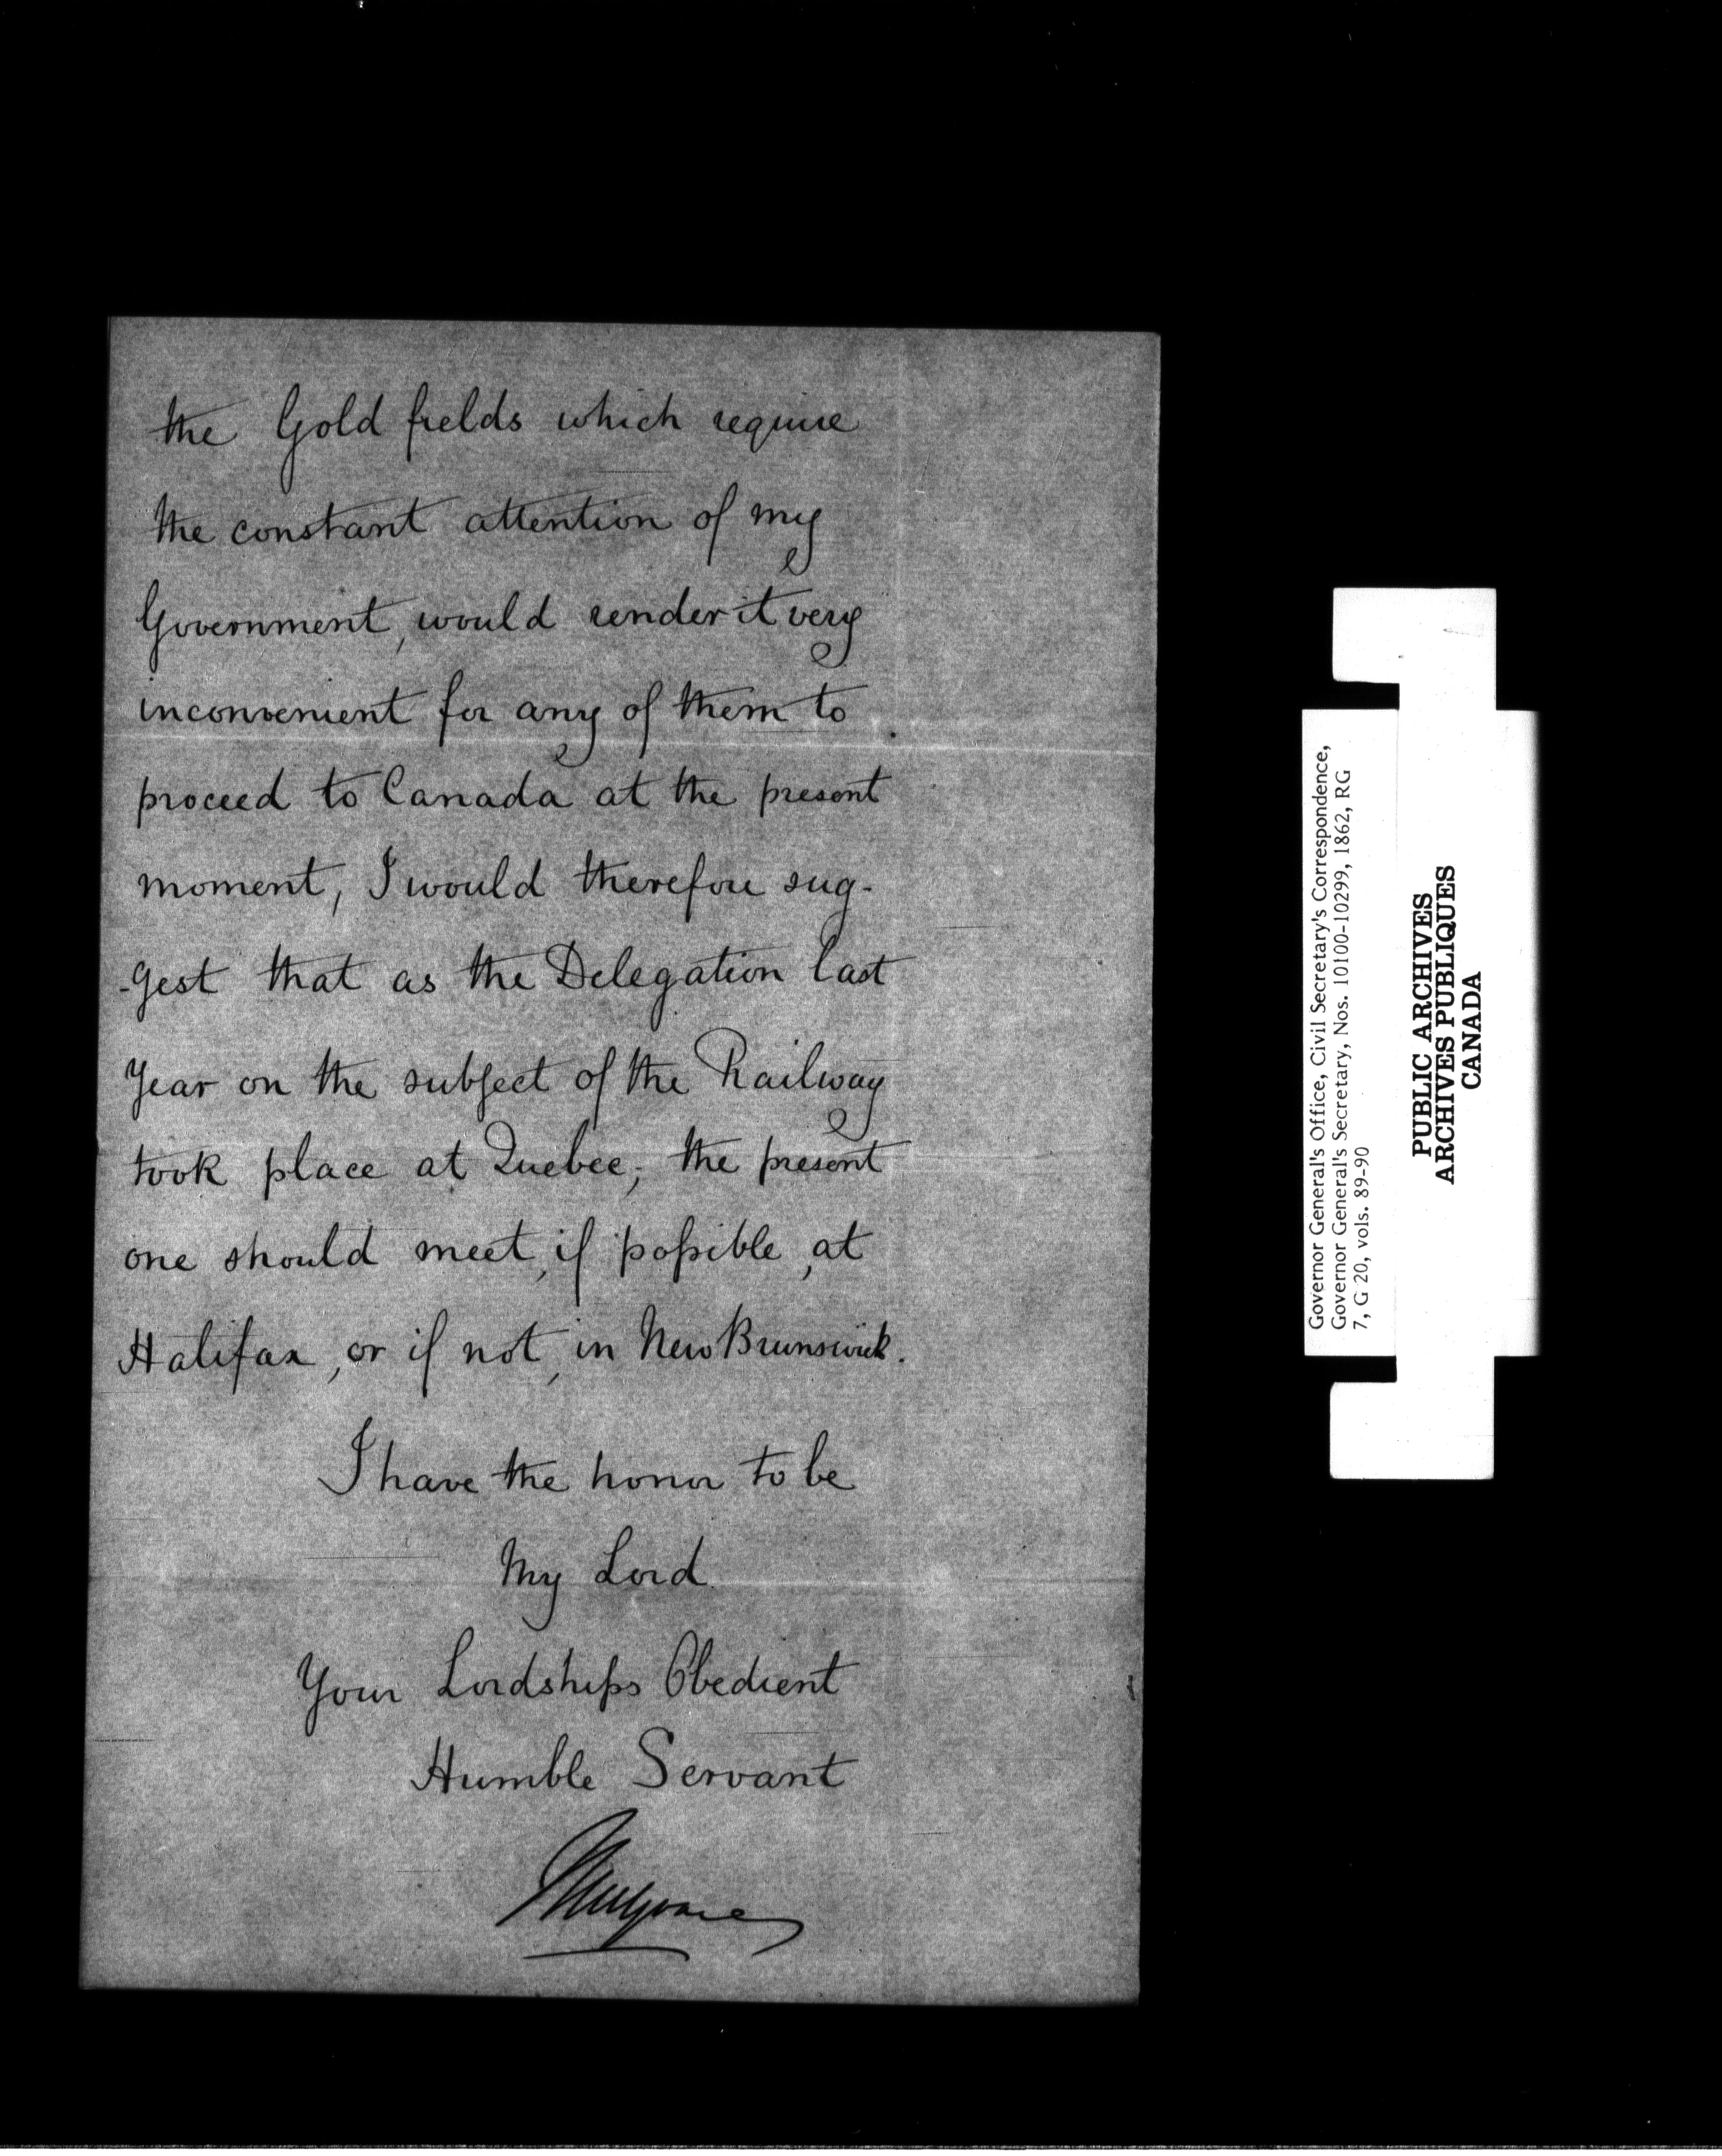 the Gold fields which require
the constant attention of my
Government, would render it very
inconvenient for any of them to
proceed to Canada at the present
moment, I would therefore sug-
-gest that as the Delegation last
Year on the subject of the Railway
took place at Quebec, the present
one should meet, if possible, at
Halifax, or if not, in New Brunswick.
I have the honor to be
My Lord
Your Lordships Obedient
Humble Servant
Mulgrave
Governor General's Office, Civil Secretary's Correspondence,
Governor General's Secretary, Nos. 10100-10299, 1862, RG
7, G 20, vols. 89-90
PUBLIC ARCHIVES
ARCHIVES PUBLIQUES
CANADA